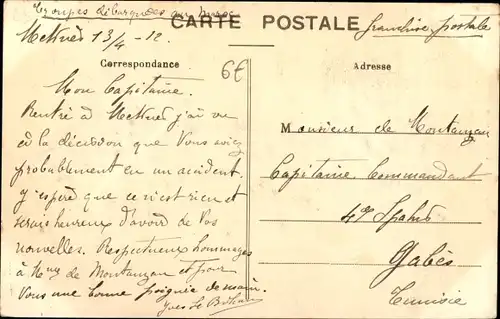 Troupes débarquées au Maroc
CARTE POSTALE
franchise postale
Meknès 13/4 - 12
6€
Correspondance
Mon Capitaine.
Rentré à Meknès j'ai vu
à la décission que Vous aviez
probablement eu un accident.
J'espère que ce n'est rien et
serais heureux d'avoir de Vos
nouvelles. Respectueux hommages
à Mme de Montauzan et pour
Vous une bonne poignée de main.
Yves Le
Adresse
Monsieur de Montauzan
Capitaine Commandant
4e Spahis
Gabès
Tunisie